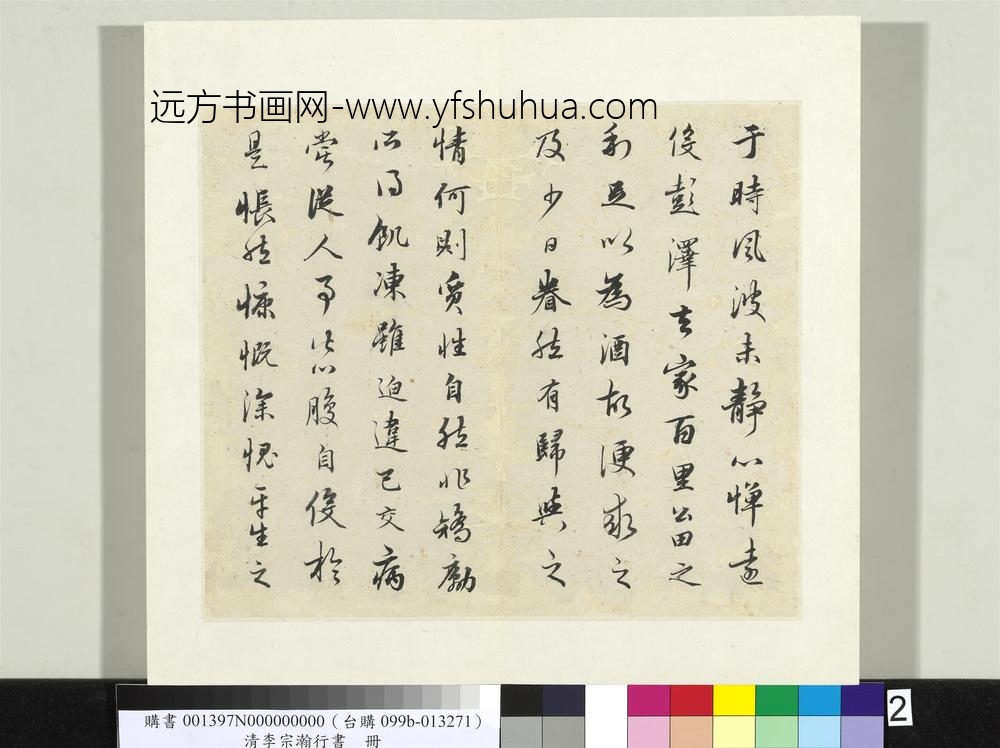 远方书画网-www.yfshuhua.com
于時風波未静心憚遠
役彭澤去家百里公田之
利足以為酒故便求之
及少日眷然有歸與之
情何則質性自然非矯勵
所得飢凍雖迫違己交病
嘗從人事皆口腹自役於
是悵然慷慨深愧平生之
購書001397N000000000（台購099b-013271）
清李宗瀚行書　冊
2